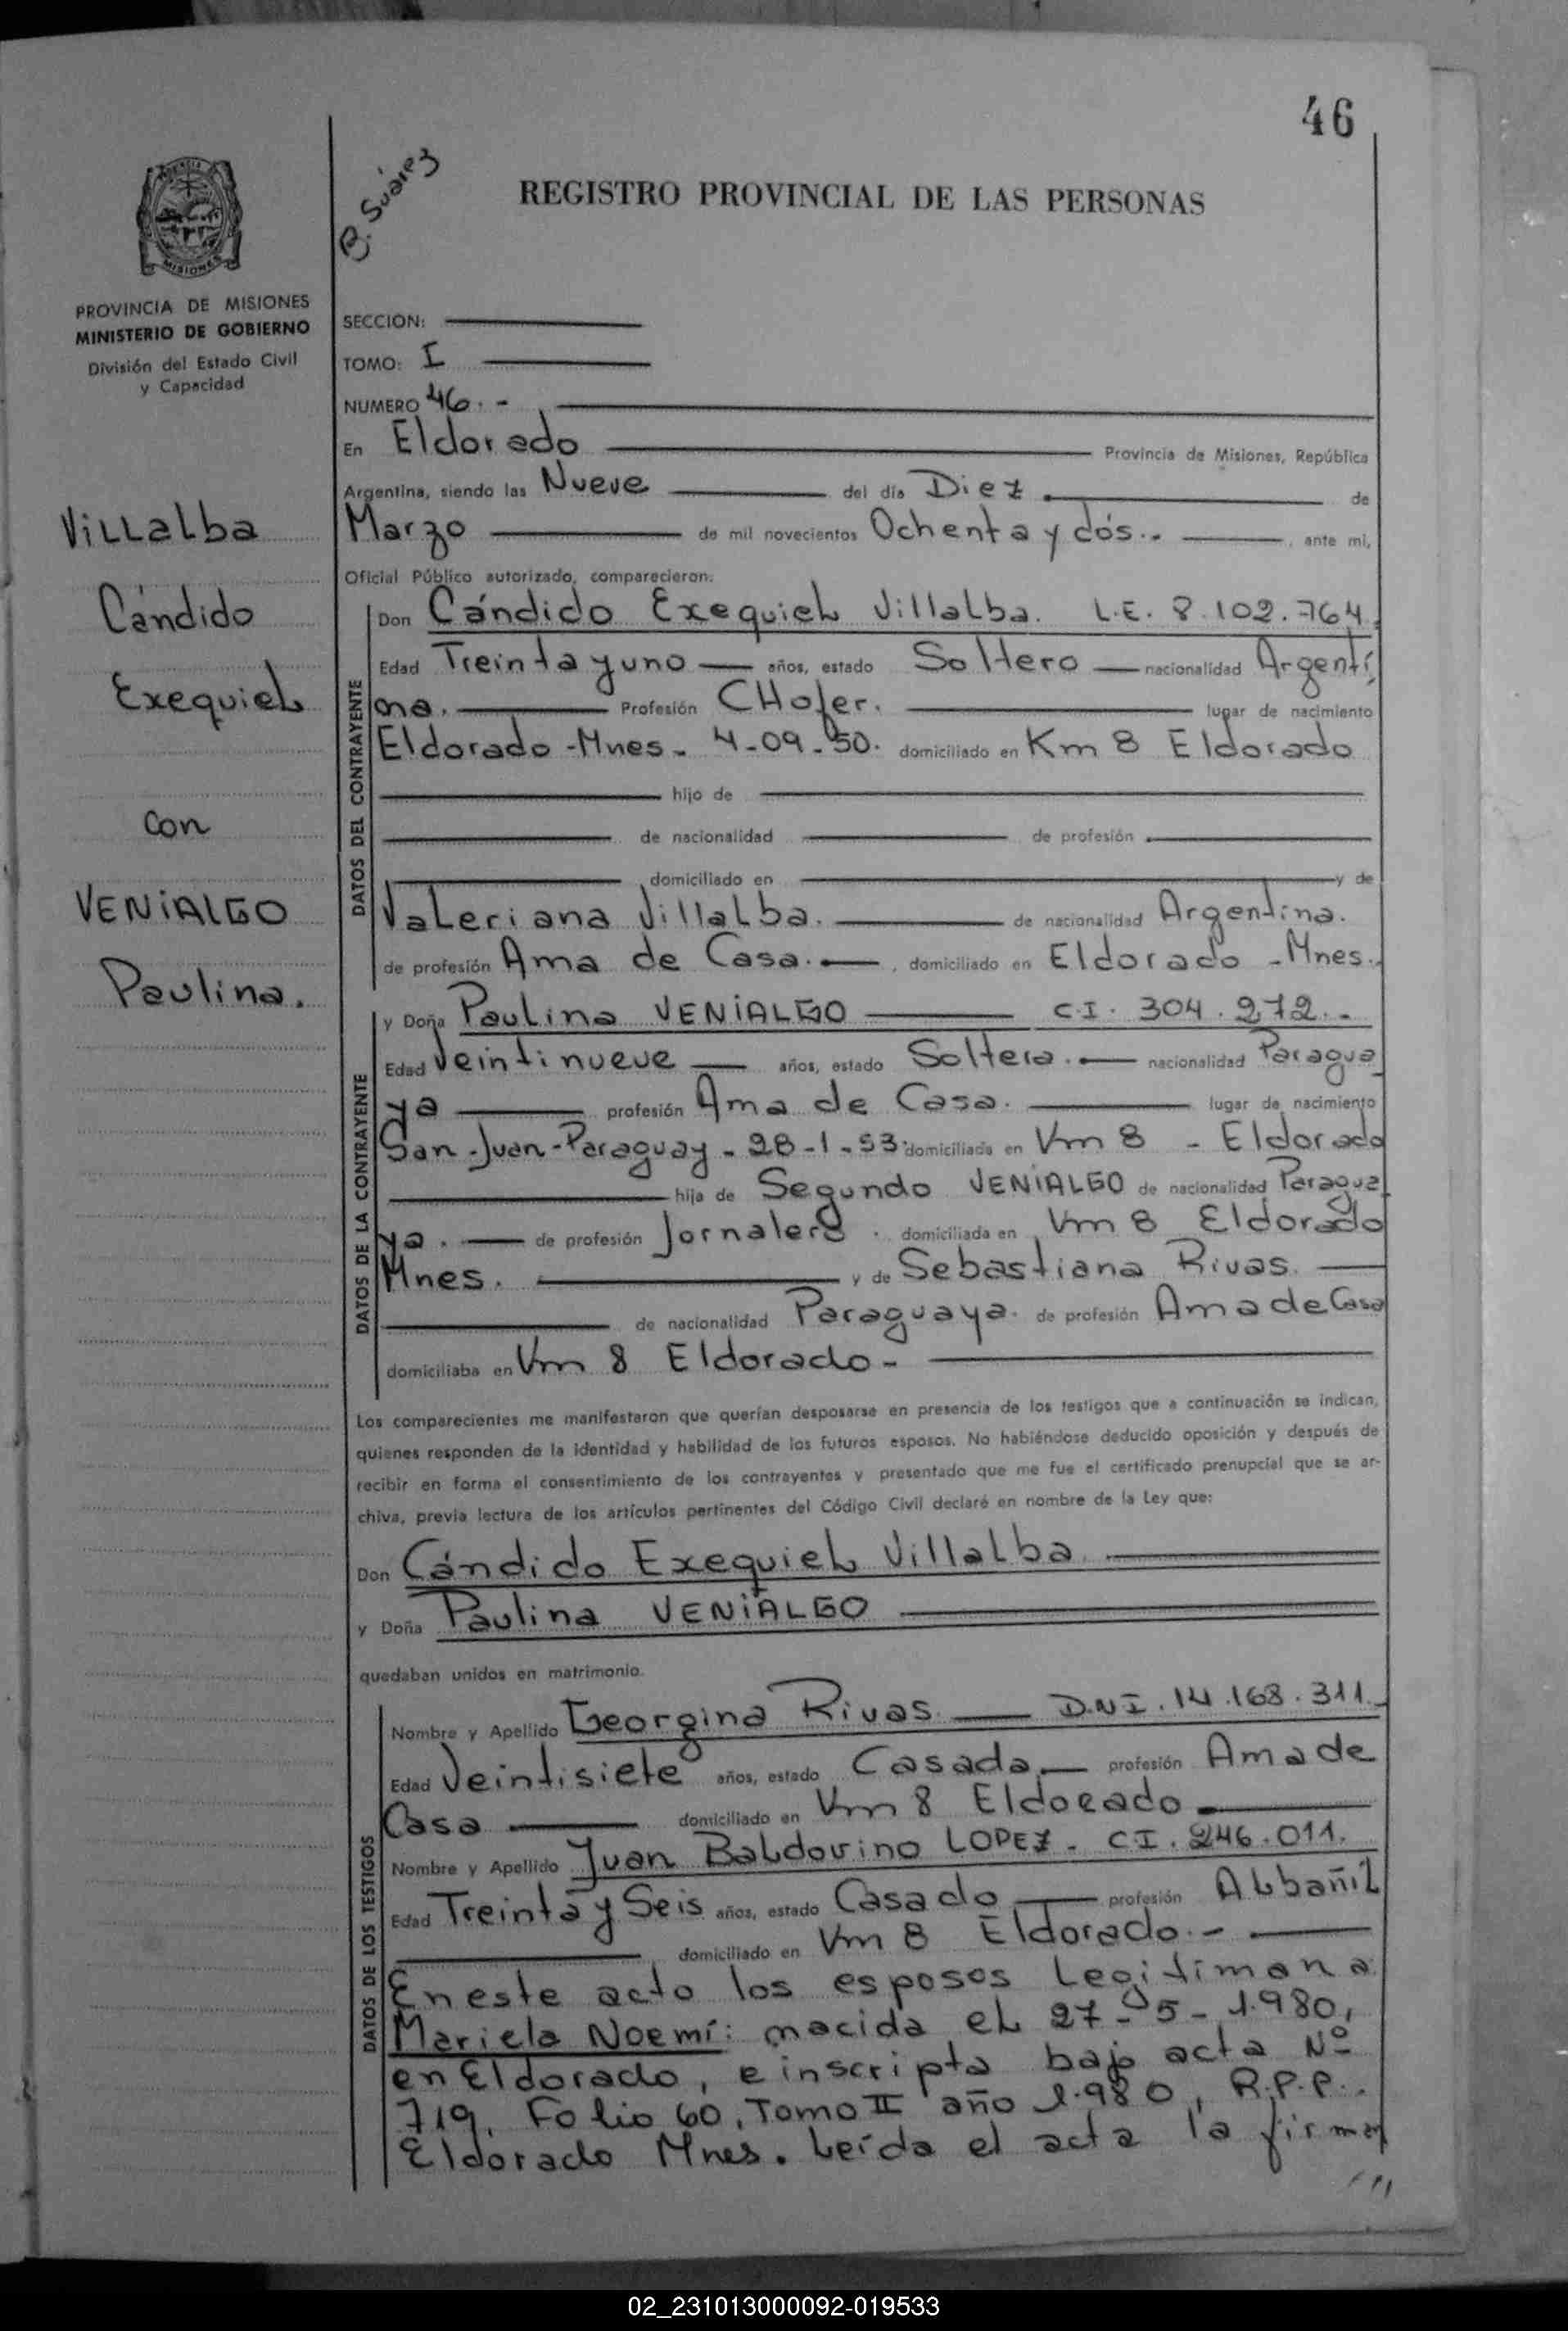 46
B. Suárez
REGISTRO PROVINCIAL DE LAS PERSONAS
PROVINCIA DE MISIONES
MINISTERIO DE GOBIERNO
División del Estado Civil
y Capacidad
Villalba
Cándido
Exequiel
con
VENIALGO
Paulina.
SECCION:
TOMO: I
NUMERO 46. -
En Eldorado Provincia de Misiones, República
Argentina, siendo las Nueve del día Diez de
Marzo de mil novecientos Ochenta y dós.- ante mi,
Oficial Público autorizado, comparecieron:
DATOS DEL CONTRAYENTE
Don Cándido Exequiel Villalba. L.E. 8.102.764.
Edad Treinta y uno años, estado Soltero nacionalidad Argenti
na. Profesión CHofer. lugar de nacimiento
Eldorado - Mnes - 4-09-50. domiciliado en Km 8 Eldorado
hijo de
de nacionalidad de profesión
domiciliado en y de
Valeriana Villalba. de nacionalidad Argentina.
de profesión Ama de Casa. domiciliado en Eldorado - Mnes.
DATOS DE LA CONTRAYENTE
y Doña Paulina VENIALGO C.I. 304.272.-
Edad Veintinueve años, estado Soltera. nacionalidad Paragua
ya profesión Ama de Casa. lugar de nacimiento
San-Juan-Paraguay - 28-1-53. domiciliada en Km 8 - Eldorado
hija de Segundo VENIALGO de nacionalidad Paragua
ya. de profesión Jornalero. domiciliada en Km 8 Eldorado
Mnes. y de Sebastiana Rivas.
de nacionalidad Paraguaya. de profesión Ama de Casa
domiciliaba en Km 8 Eldorado -
Los comparecientes me manifestaron que querían desposarse en presencia de los testigos que a continuación se indican,
quienes responden de la identidad y habilidad de los futuros esposos. No habiéndose deducido oposición y después de
recibir en forma el consentimiento de los contrayentes y presentado que me fue el certificado prenupcial que se ar-
chiva, previa lectura de los artículos pertinentes del Código Civil declaré en nombre de la Ley que:
Don Cándido Exequiel Villalba
y Doña Paulina VENIALGO
quedaban unidos en matrimonio.
DATOS DE LOS TESTIGOS
Nombre y Apellido Georgina Rivas. D.N.I. 14.168.311.
Edad Veintisiete años, estado Casada profesión Ama de
Casa domiciliado en Km 8 Eldorado
Nombre y Apellido Juan Baldovino LOPEZ - C.I. 246.011.
Edad Treinta y Seis años, estado Casado profesión Albañil
domiciliado en Km 8 Eldorado.-
En este acto los esposos Legitiman a
Mariela Noemí: nacida el 27-5-1.980,
en Eldorado, e inscripta bajo acta Nº
719, Folio 60, Tomo II año 1.980, R.P.P..
Eldorado Mnes. Leída el acta la firman
02_231013000092-019533